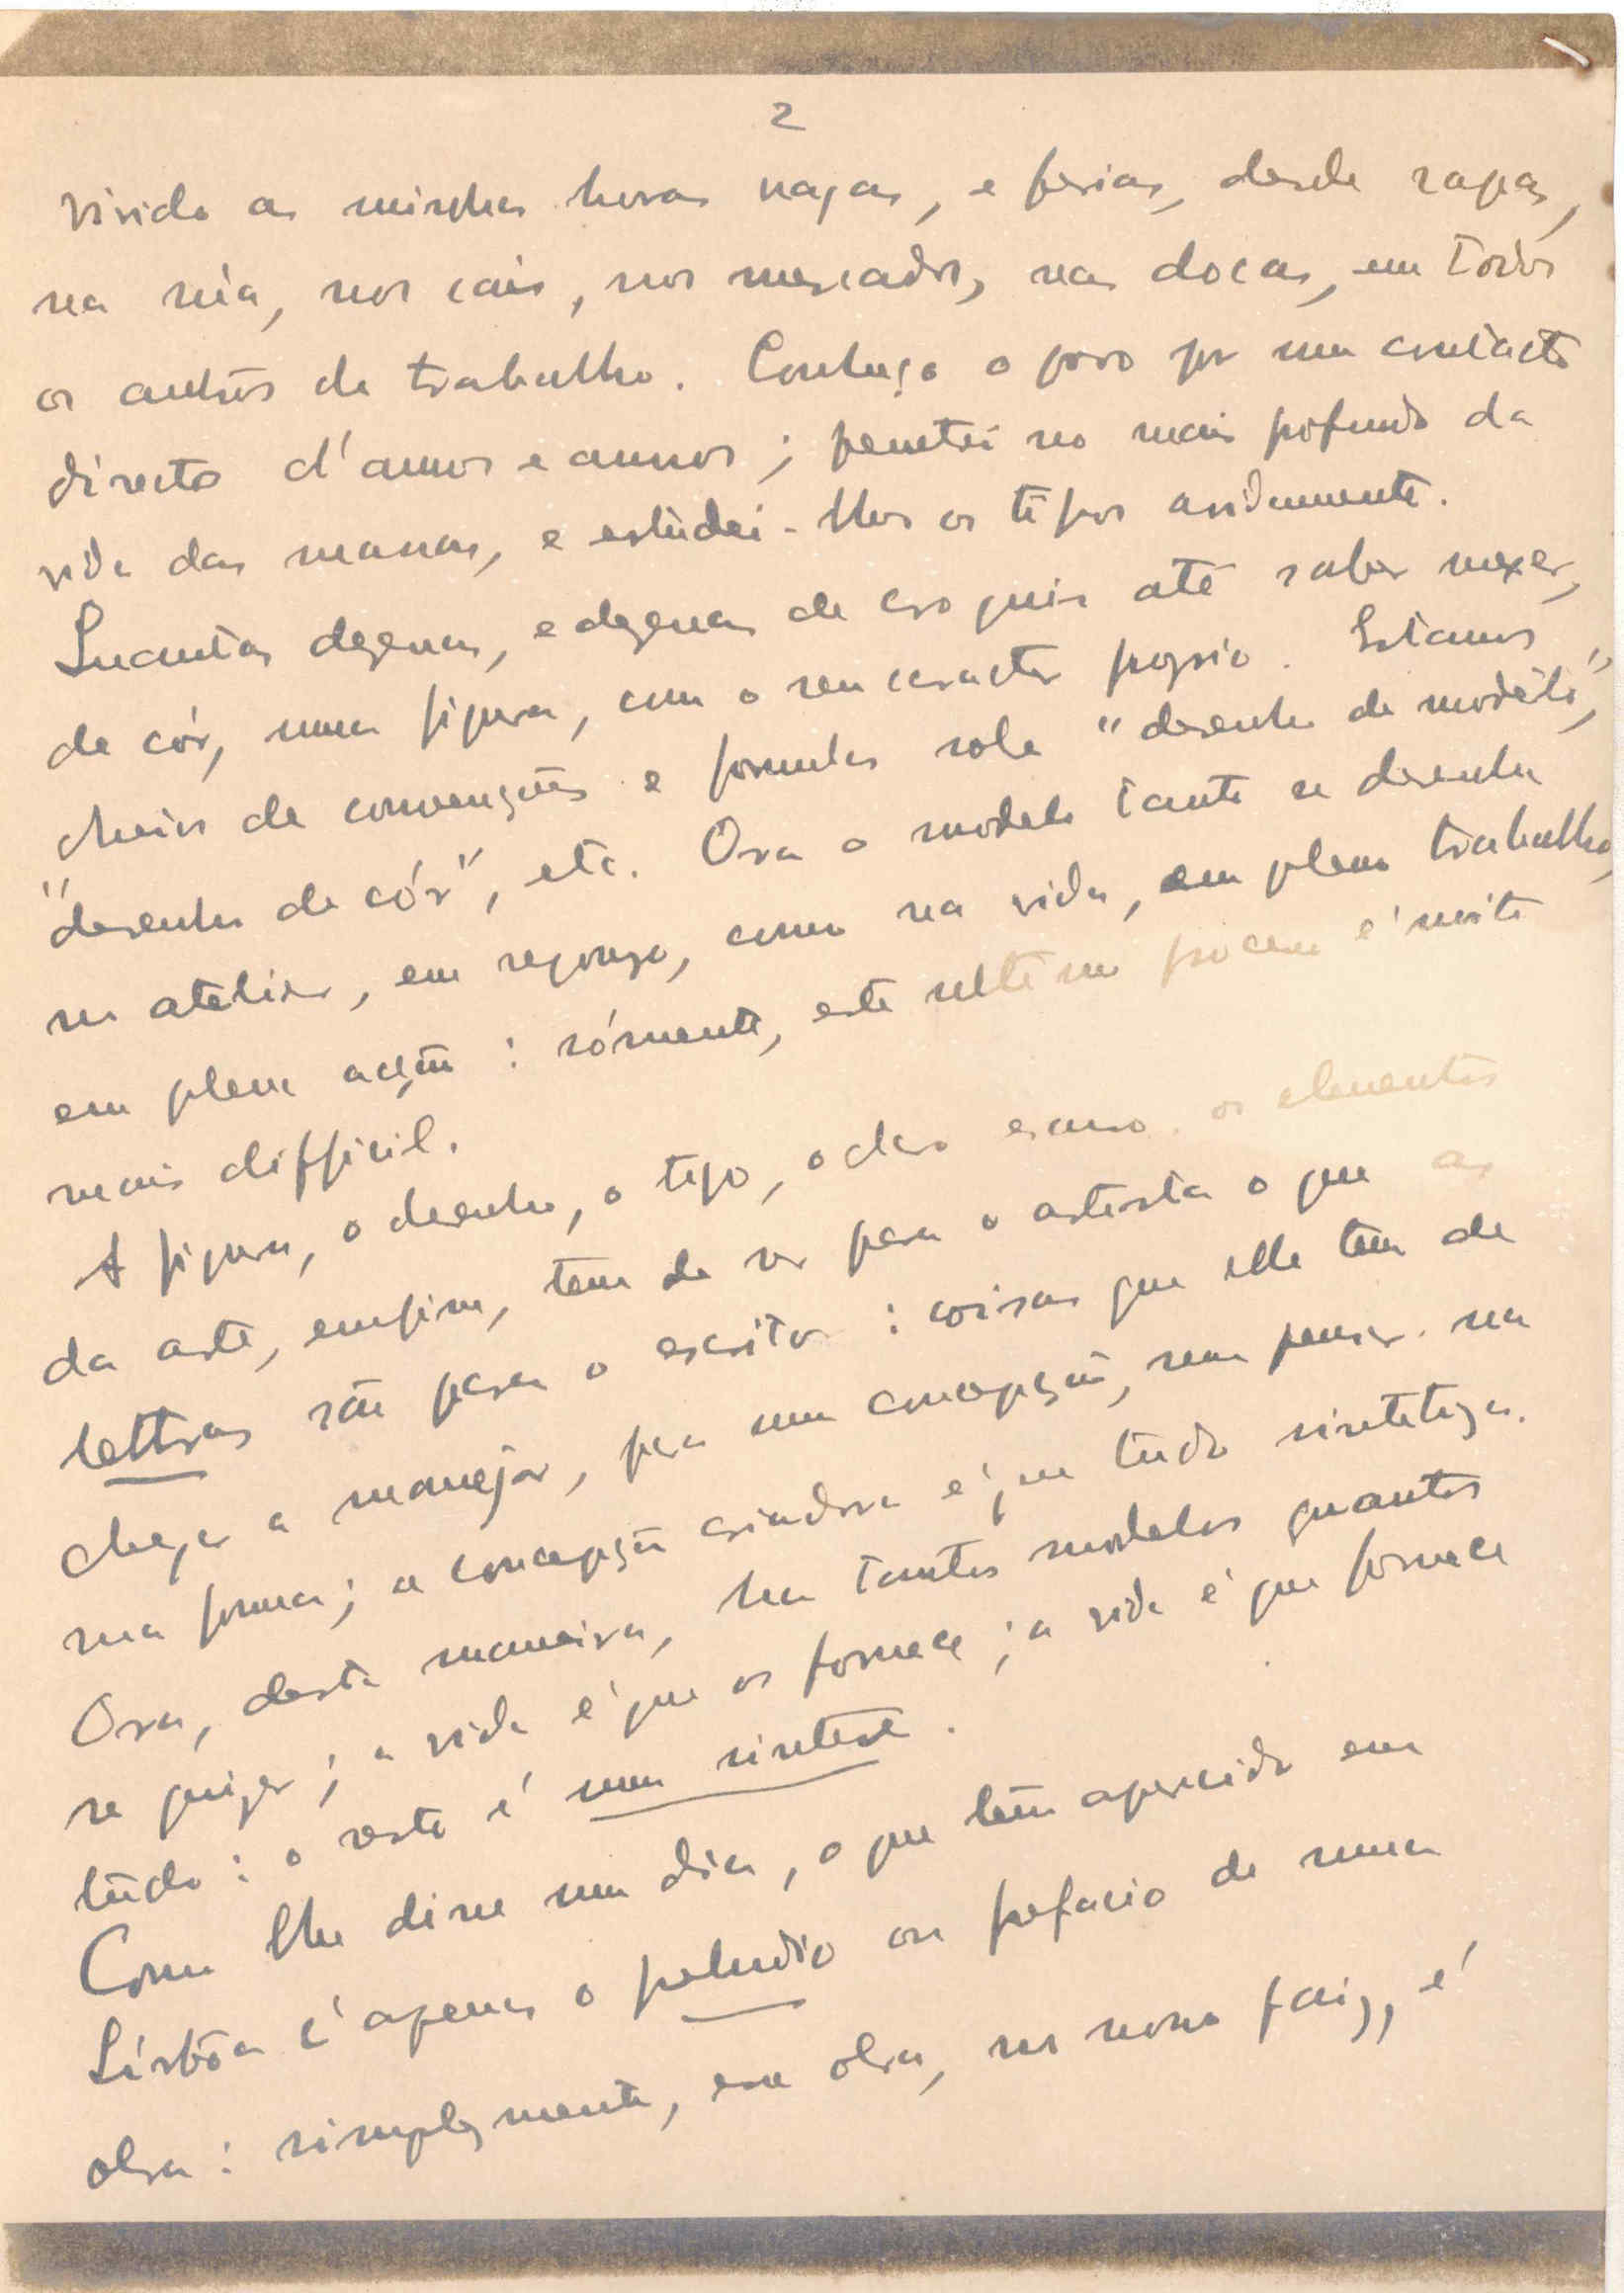 2
vivido as minhas horas vagas, e ferias, desde rapaz,
na rua, nos cais, nos mercados, nas docas, em todos
os centros de trabalho. Conheço o povo por um contacto
directo d'annos e annos; penetrei no mais profundo da
vida das massas, e estudei-lhes os typos avidamente.
Quantas dezenas, e dezenas de croquis até saber mexer,
de cór, uma figura, com o seu caracter proprio. Estamos
cheios de convenções e formulas sobre "desenho de modêlo",
"desenho de cór", etc. Ora o modelo tanto se desenha
no atelier, em repouso, como na vida, em pleno trabalho,
em plena acção: sómente, este ultimo processo é muito
mais difficil.
A figura, o desenho, o typo, o claro escuro os elementos
da arte, emfim, tem de ser para o artista o que as
lettras são para o escritor: coisas que elle tem de
chegar a manejar, para uma concepção, sem pensar na
sua forma; a concepção criadora é que tudo sintetiza.
Ora, desta maneira, ha tantos modelos quantos
se quizer; a vida é que os fornece; a vida é que fornece
tudo: o resto é uma sintese.
Como lhe disse um dia, o que tem aparecido em
Lisbôa é apenas o preludio ou prefacio de uma
obra: simplesmente, essa obra, no nosso paiz, é